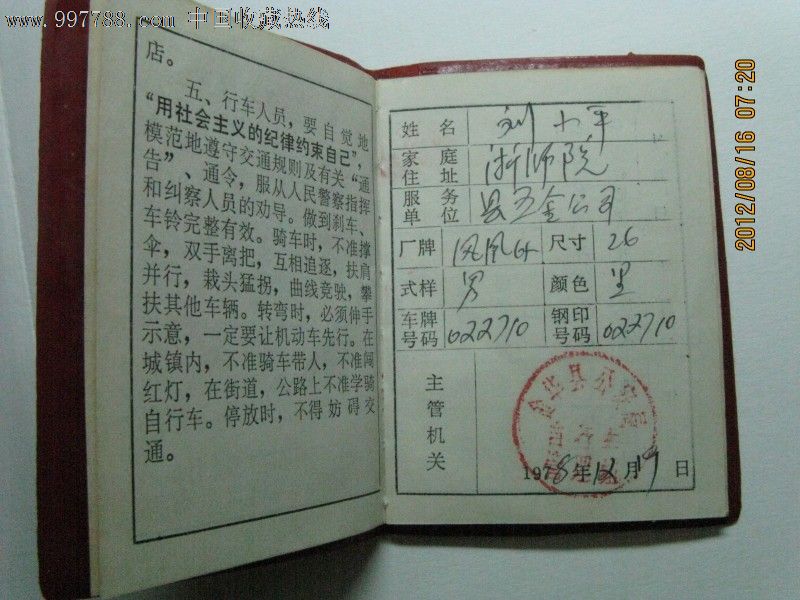 www.997788.com 中国收藏热线
店。
五、行车人员，要自觉地
“用社会主义的纪律约束自己”，
模范地遵守交通规则及有关“通
告”、通令，服从人民警察指挥
和纠察人员的劝导。做到刹车、
车铃完整有效。骑车时，不准撑
伞，双手离把，互相追逐，扶肩
并行，栽头猛拐，曲线竞驶，攀
扶其他车辆。转弯时，必须伸手
示意，一定要让机动车先行。在
城镇内，不准骑车带人，不准闯
红灯，在街道，公路上不准学骑
自行车。停放时，不得妨碍交
通。
姓名 刘小军
家庭住址 浙师院
服务单位 县五金公司
厂牌 凤凰 尺寸 26
式样 男 颜色 黑
车牌号码 022710 钢印号码 022710
主管机关
金华县公安局
1978年12月19日
2012/08/16 07:20